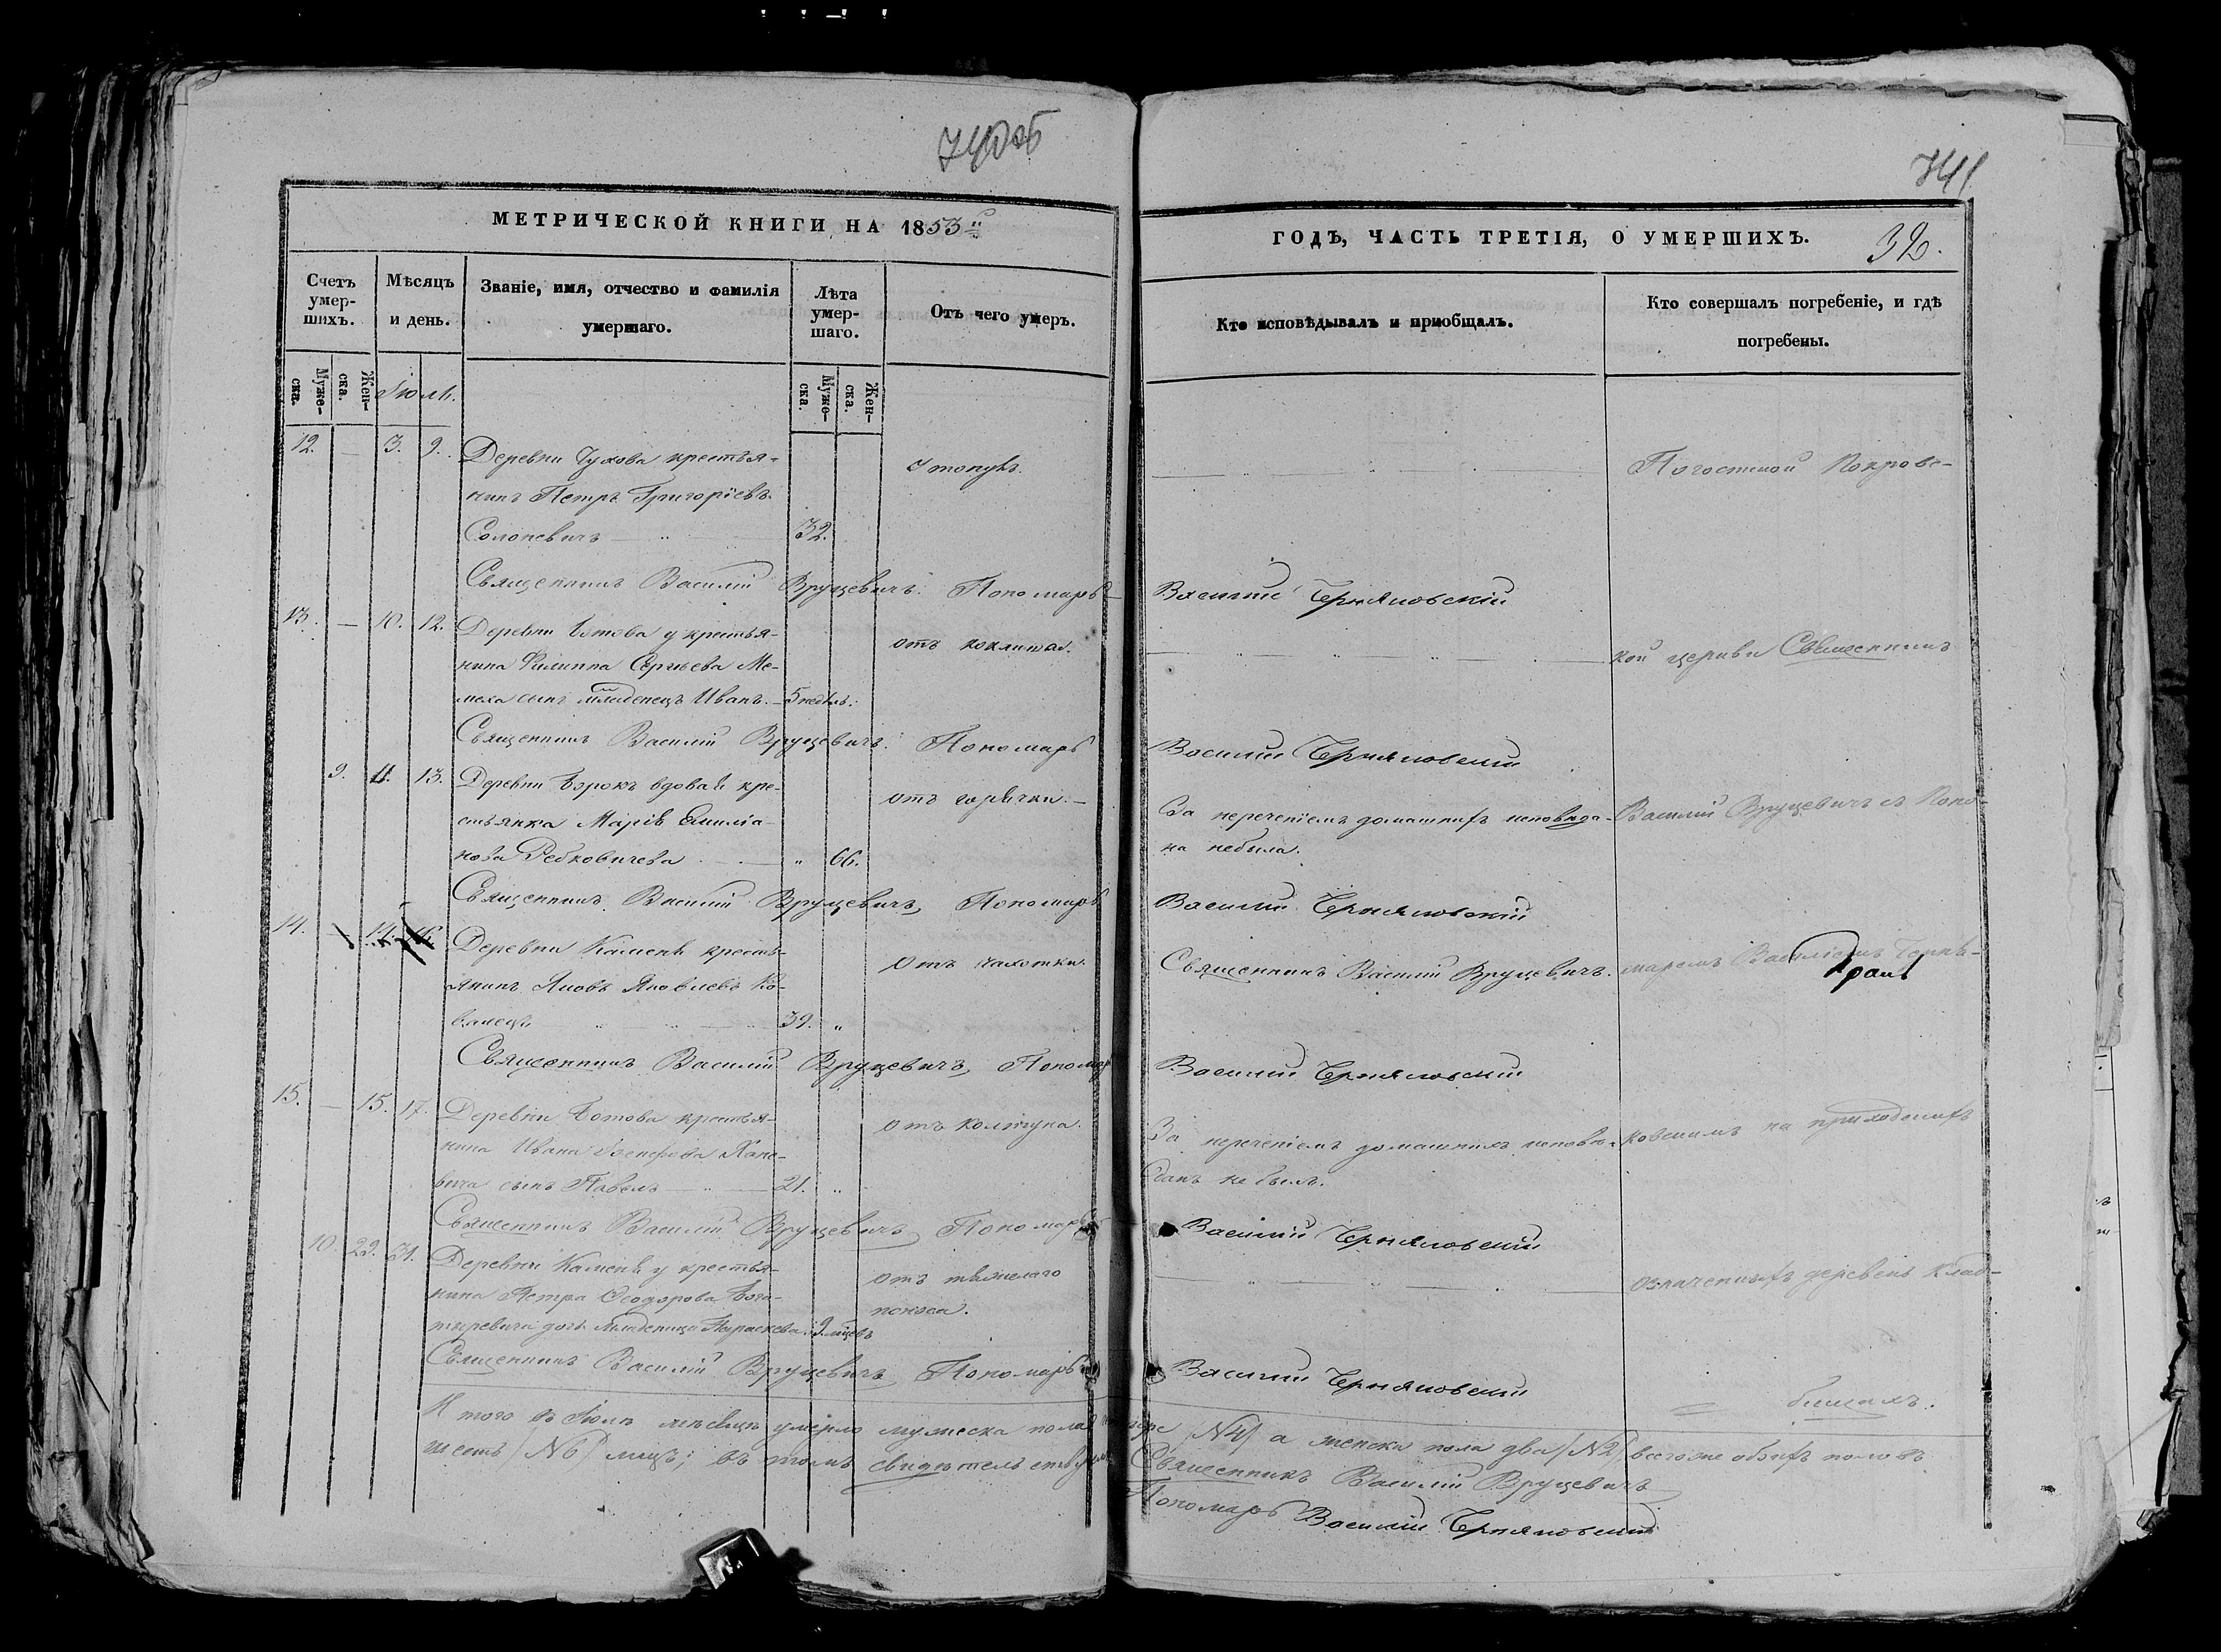 740об
741
МЕТРИЧЕСКОЙ КНИГИ НА 1853й
ГОДЪ, ЧАСТЬ ТРЕТІЯ, О УМЕРШИХЪ.
32.
Счетъ умер-
шихъ.
Мѣсяцъ
и день.
Званіе, имя, отчество и фамилія
умершаго.
Лѣта
умер-
шаго.
Отъ чего умеръ.
Кто исповѣдывалъ и пріобщалъ.
Кто совершалъ погребеніе, и гдѣ
погребены.
Муже-
ска.
Жен-
ска.
Іюль.
Муже-
ска.
Жен-
ска.
12. — 3. 9. Деревни Чухова крестья-
нинъ Петръ Григоріевъ
Солоневичъ 32.
Утонулъ.
Погостской Покровс-
Священникъ Василій Вруцевичъ. Пономарь Василій Черняловскій
13. — 10. 12. Деревни Ботова у крестья-
нина Филиппа Сергѣева Ме-
леха сынъ младенецъ Иванъ. 5 недѣль.
отъ коклюша.
кой церкви Священникъ
Священникъ Василій Вруцевичъ. Пономарь Василій Черняловскій
9. 11. 13. Деревни Бэрокъ вдовая кре-
стьянка Марія Емиліа-
нова Редковичева " 66.
отъ горячки.
За нереченіемъ домашнихъ исповѣда-
на небыла.
Василій Вруцевичъ съ Поно-
Священникъ Василій Вруцевичъ, Пономарь Василій Черняловскій
14. — 14. 16. Деревни Камень кресть-
янинъ Яковъ Яковлевъ Ко-
валецъ 39. "
Отъ чахотки.
Священникъ Василій Вруцевичъ.
маремъ Василіемъ Черня-
Священникъ Василій Вруцевичъ, Пономарь Василій Черняловскій
15. — 15. 17. Деревни Ботова крестья-
нина Ивана Іосифова Хане-
вича сынъ Павелъ 21. "
отъ колтуна.
За нереченіемъ домашнихъ исповѣ-
данъ не былъ.
ковскимъ на приходскихъ
Священникъ Василій Вруцевичъ, Пономарь Василій Черняловскій
10. 29. 31. Деревни Камень у крестья-
нина Петра Ѳеодорова Бога-
тыревича дочь младеница Параскева 9 мѣсцевъ
отъ тяжелаго
поноса.
означенныхъ деревень клад-
Священникъ Василій Вруцевичъ, Пономарь Василій Черняловскій
бищахъ.
Итого въ Іюлѣ мѣсяцѣ умерло мужеска пола четыре /№4/ а женска пола два /№2/ всего же обоихъ половъ
шесть /№6/ лицъ; въ томъ свидѣтельствуемъ Священникъ Василій Вруцевичъ
Пономарь Василій Черняловскій